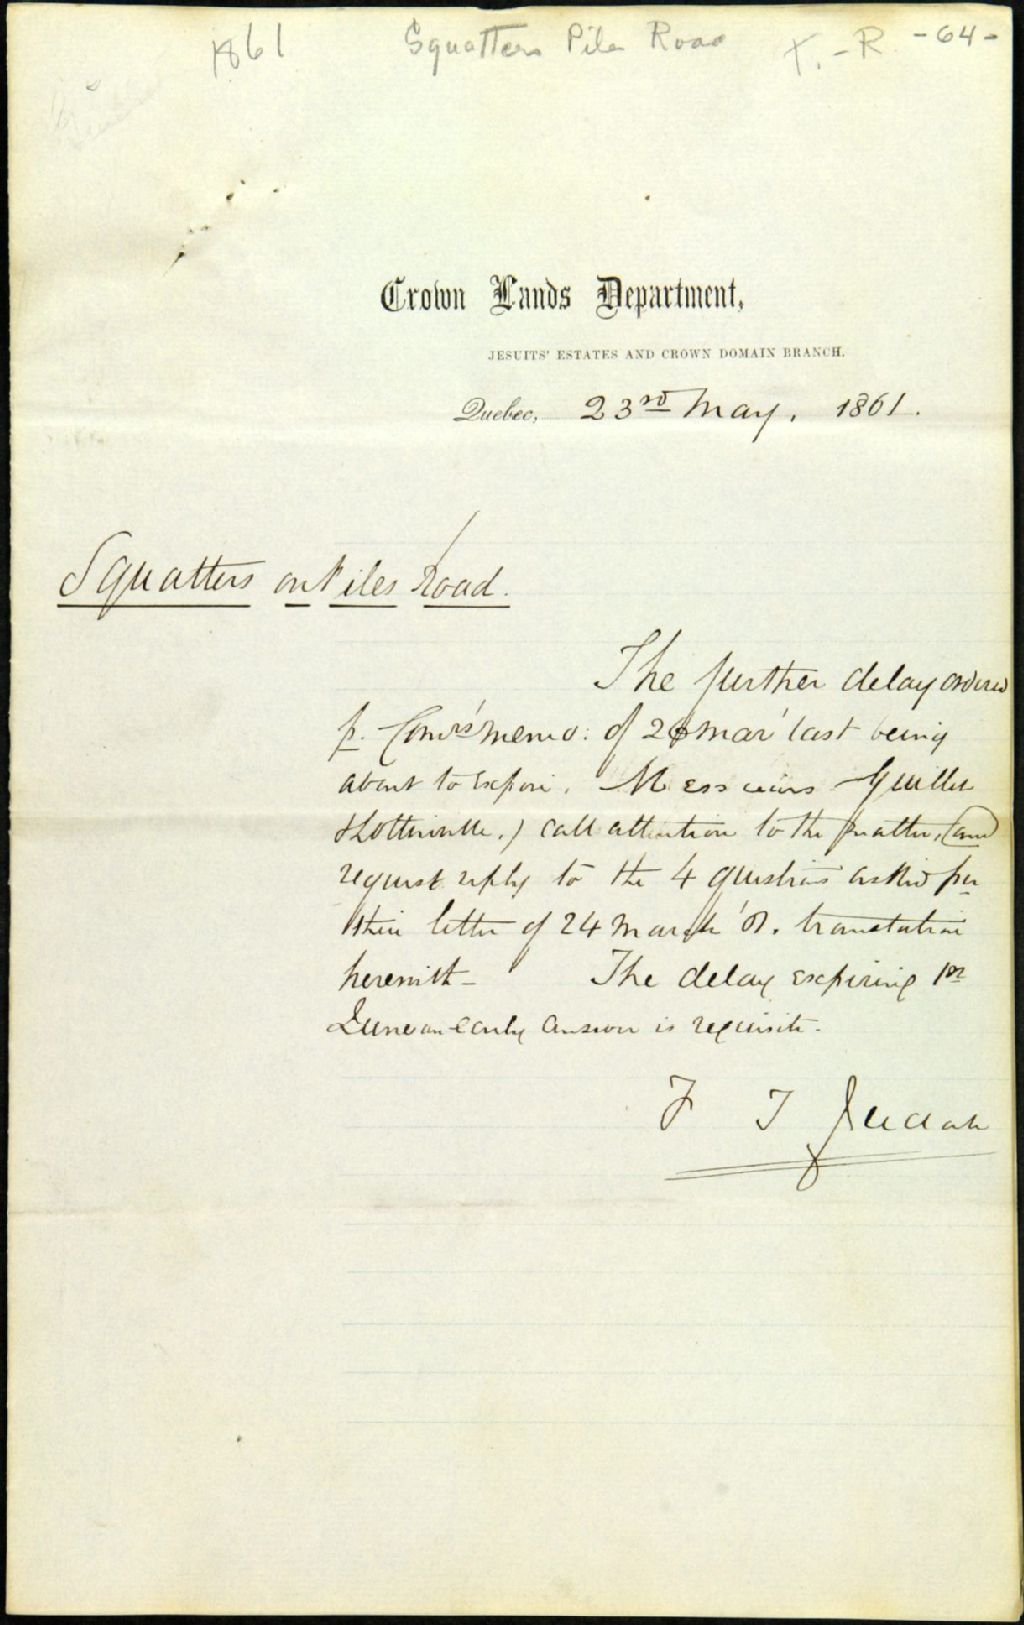 1861 Squatters Piles Road X.-R -64-
Crown Lands Department,
JESUITS' ESTATES AND CROWN DOMAIN BRANCH.
Quebec, 23rd May, 1861.
Squatters on Piles Road.
The further delay ordered
p. Comrs' memo: of 26 Mar' last being
about to expire. Messieurs Guillet
& Lottinville,) call attention to the matter, and
request reply to the 4 questions asked per
their letter of 24 March '61. translation
herewith - The delay expiring 1st
June an early answer is requisite.
F T Judah